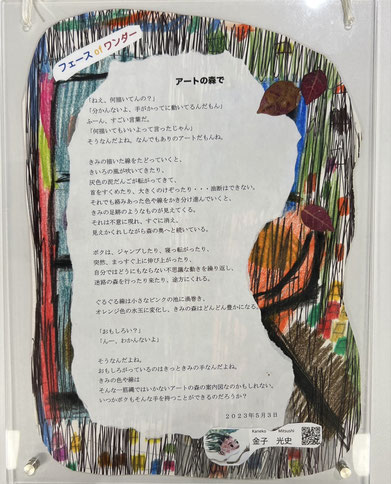 フェース of ワンダー
アートの森で
「ねえ、何描いてんの?」
「分かんないよ、手がかってに動いてるんだもん」
ふーん、すごい言葉だ。
「何描いてもいいよって言ったじゃん」
そうなんだよね。なんでもありのアートだもんね。
きみの描いた線をたどっていくと、
きいろの風が吹いてきたり、
灰色の泥だんごが転がってきて、
首をすくめたり、大きくのけぞったり・・・油断はできない。
それでも絡みあった色や線をかき分け進んでいくと、
きみの足跡のようなものが見えてくる。
それは不意に現れ、すぐに消え、
見えかくれしながら森の奥へと続いている。
ボクは、ジャンプしたり、寝っ転がったり、
突然、まっすぐ上に伸び上がったり、
自分ではどうにもならない不思議な動きを繰り返し、
迷路の森を行ったり来たり、途方にくれる。
ぐるぐる線は小さなピンクの池に渦巻き、
オレンジ色の水玉に変化し、きみの森はどんどん豊かになる。
「おもしろい?」
「んー、わかんないよ」
そうなんだよね。
おもしろがっているのはきっときみの手なんだよね。
きみの色や線は
そんな一筋縄ではいかないアートの森の案内図なのかもしれない。
いつかボクもそんな手を持つことができるのだろうか?
2023年5月3日
Kaneko Mitsushi
金子 光史